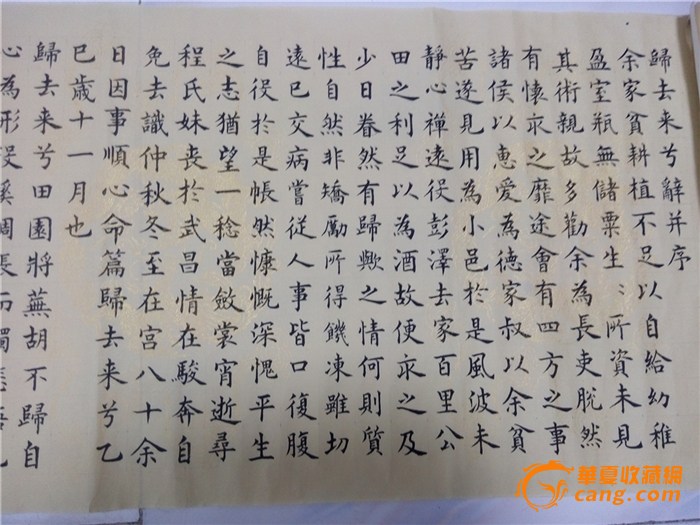 歸去来兮辭并序
余家貧耕植不足以自給幼稚
盈室瓶無儲粟生〻所資未見
其術親故多勸余為長吏脱然
有懷求之靡途會有四方之事
諸侯以惠愛為德家叔以余貧
苦遂見用為小邑於是風波未
靜心禪遠役彭澤去家百里公
田之利足以為酒故便求之及
少日眷然有歸歟之情何則質
性自然非矯勵所得饑凍雖切
遠已交病嘗從人事皆口復腹
自役於是悵然慷慨深愧平生
之志猶望一稔當斂裳宵逝尋
程氏妹喪於武昌情在駿奔自
免去識仲秋冬至在宫八十余
日因事順心命篇歸去来兮乙
巳歲十一月也
歸去来兮田園將蕪胡不歸自
心為形役
華夏收藏網
cang.com